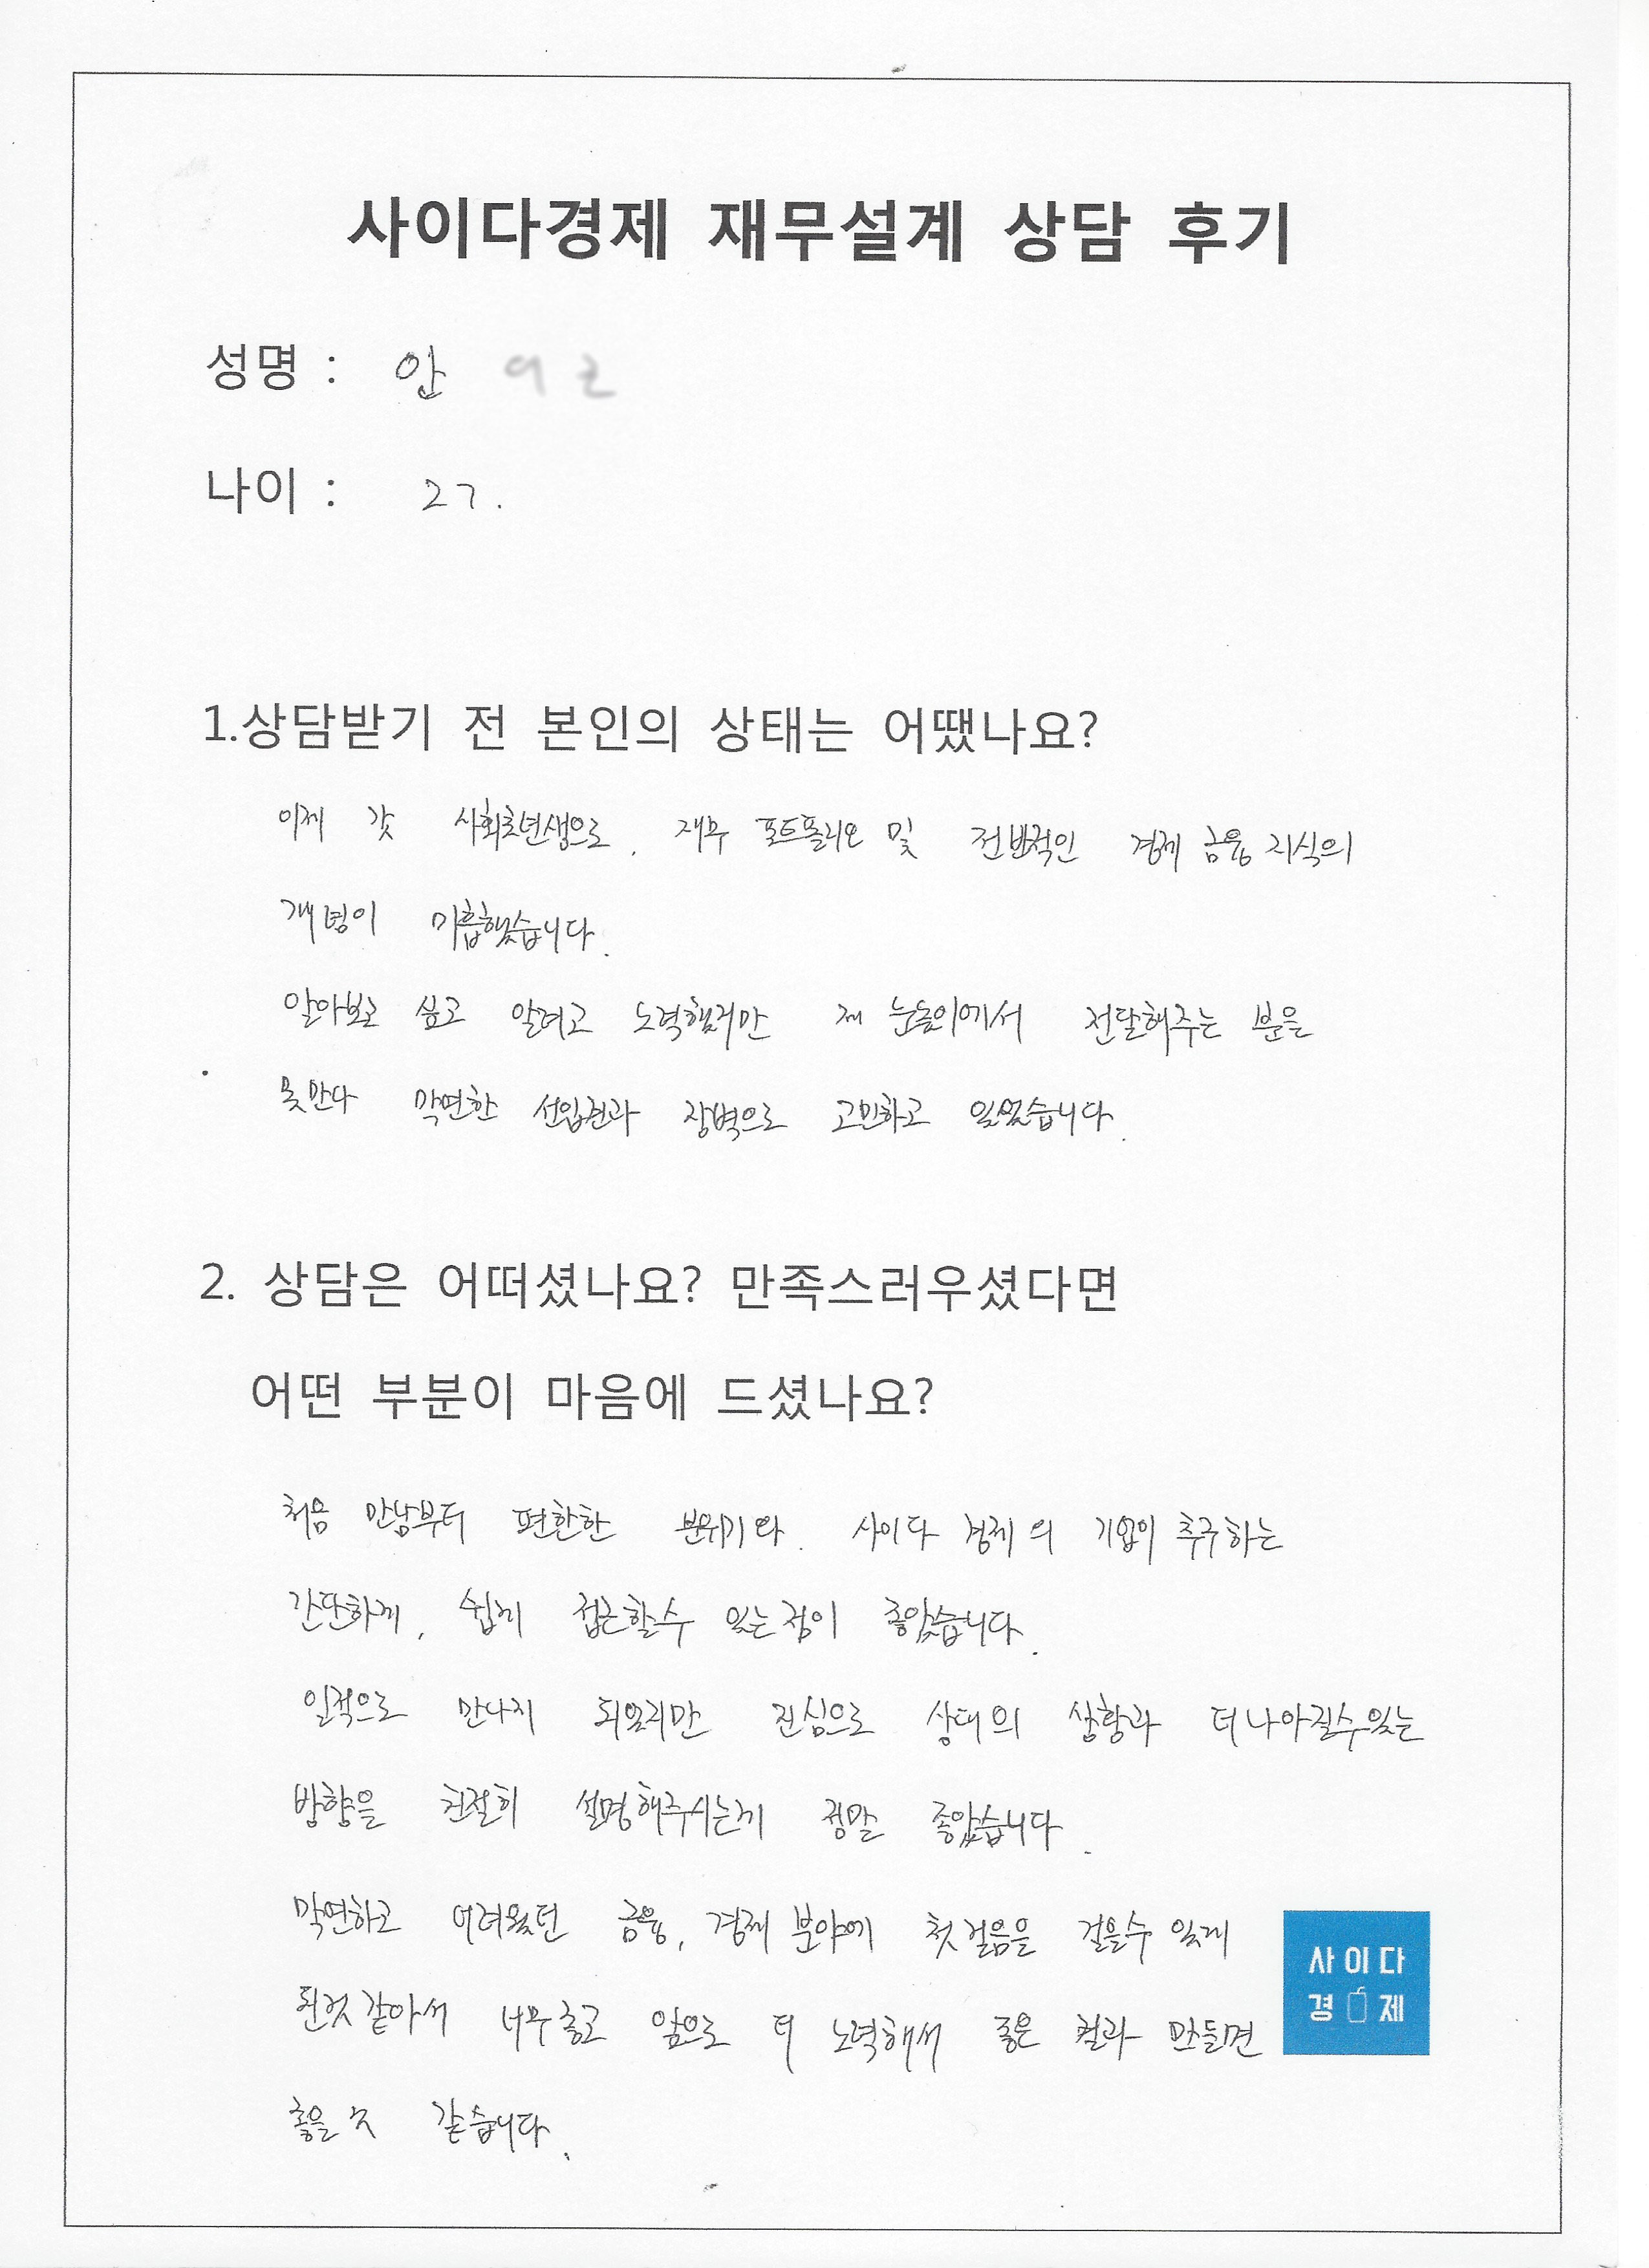 사이다경제 재무설계 상담 후기
성명 : 안
나이 : 27.
1.상담받기 전 본인의 상태는 어땠나요?
이제 갓 사회초년생으로, 재무 포트폴리오 및 전반적인 경제 금융 지식의
개념이 미흡했습니다.
알아보고 싶고 알려고 노력했지만 제 눈높이에서 전달해주는 분을
못만나 막연한 선입견과 장벽으로 고민하고 있었습니다.
2. 상담은 어떠셨나요? 만족스러우셨다면
어떤 부분이 마음에 드셨나요?
처음 만남부터 편한한 분위기와, 사이다 경제의 기업이 추구하는
간단하게, 쉽게 접근할수 있는점이 좋았습니다.
일적으로 만나지 되었지만 진심으로 상대의 상황과 더나아질수있는
방향을 친절히 설명해주시는게 정말 좋았습니다.
막연하고 어려웠던 금융, 경제 분야에 첫걸음을 걸을수 있게
된것같아서 너무좋고 앞으로 더 노력해서 좋은 결과 만들면
좋을 것 같습니다.
사이다
경제